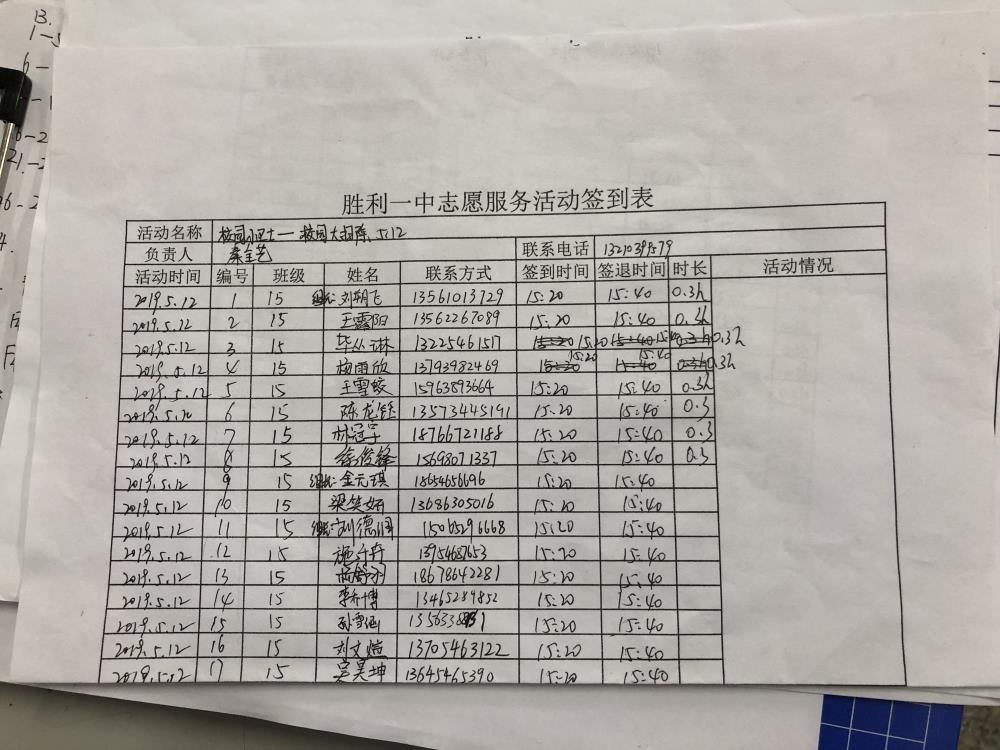 13.
胜利一中志愿服务活动签到表
活动名称 校园卫士——校园大扫除 5.12
负责人 秦全艺 联系电话 13210399579
活动时间 编号 班级 姓名 联系方式 签到时间 签退时间 时长 活动情况
2019.5.12 1 15 组长 刘朝飞 13561013729 15:20 15:40 0.3h
2019.5.12 2 15 王露阳 13562267089 15:20 15:40 0.3h
2019.5.12 3 15 毕丛琳 13225461517 15:20 15:40 0.3h
2019.5.12 4 15 杨雨欣 13793982469 15:20 15:40 0.3h
2019.5.12 5 15 王雪蛟 15963893664 15:20 15:40 0.3h
2019.5.12 6 15 陈龙钰 13573445191 15:20 15:40 0.3
2019.5.12 7 15 林冠宇 18766721188 15:20 15:40 0.3
2019.5.12 8 15 徐俊锋 15698071337 15:20 15:40 0.3
2019.5.12 9 15 组长 金元琪 18654656696 15:20 15:40
2019.5.12 10 15 梁笑妍 13686305016 15:20 15:40
2019.5.12 11 15 组长 刘德润 15065296668 15:20 15:40
2019.5.12 12 15 13954687653 15:20 15:40
2019.5.12 13 15 18678642281 15:20 15:40
2019.5.12 14 15 李乔博 13465289852 15:20 15:40
2019.5.12 15 15 孙雪涵 15:20 15:40
2019.5.12 16 15 刘文恺 13705463122 15:20 15:40
2019.5.12 17 15 吴昊坤 13645465390 15:20 15:40